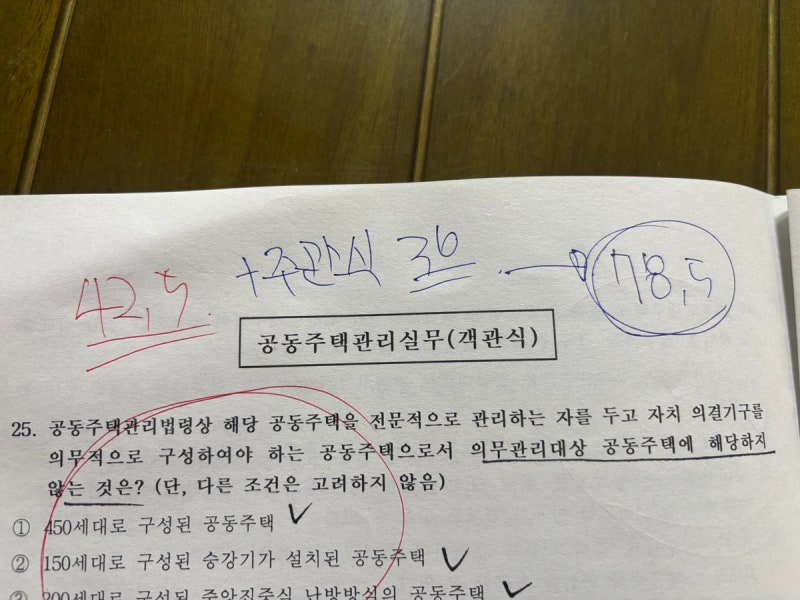 42,5 +주관식 36 → 78,5
공동주택관리실무(객관식)
25. 공동주택관리법령상 해당 공동주택을 전문적으로 관리하는 자를 두고 자치 의결기구를
의무적으로 구성하여야 하는 공동주택으로서 의무관리대상 공동주택에 해당하지
않는 것은? (단, 다른 조건은 고려하지 않음)
① 450세대로 구성된 공동주택 ✓
② 150세대로 구성된 승강기가 설치된 공동주택 ✓
③ 200세대로 구성된 중앙집중식 난방방식의 공동주택 ✓